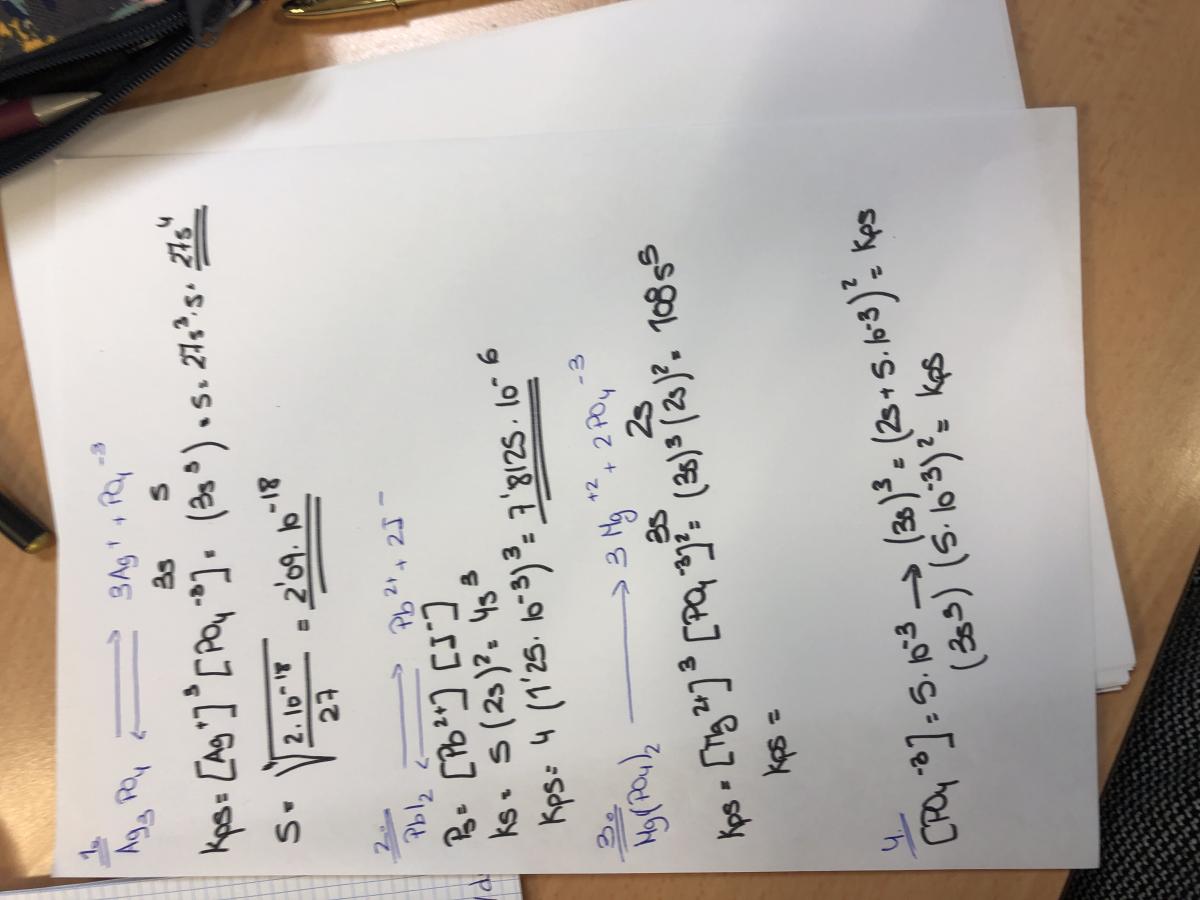 1.
Ag3PO4 ⇌ 3Ag⁺ + PO4⁻³
3s s
Kps = [Ag⁺]³ [PO4⁻³] = (3s³) · s = 27s³ · s · 27s⁴
s = ⁴√(2·10⁻¹⁸/27) = 2'09 · 10⁻¹⁸
2.
PbI2 ⇌ Pb²⁺ + 2I⁻
Ps = [Pb²⁺] [I⁻]
Ks = s (2s)² = 4s³
Kps = 4 (1'25 · 10⁻³)³ = 7'8125 · 10⁻⁶
3.
Mg(PO4)2 → 3 Mg⁺² + 2PO4⁻³
3s 2s
Kps = [Mg²⁺]³ [PO4⁻³]² = (3s)³ (2s)² = 108s⁵
Kps =
4
[PO4⁻³] = 5 · 10⁻³ → (3s)³ = (2s + 5 · 10⁻³)² = Kps
(3s³) (5 · 10⁻³)² = Kps